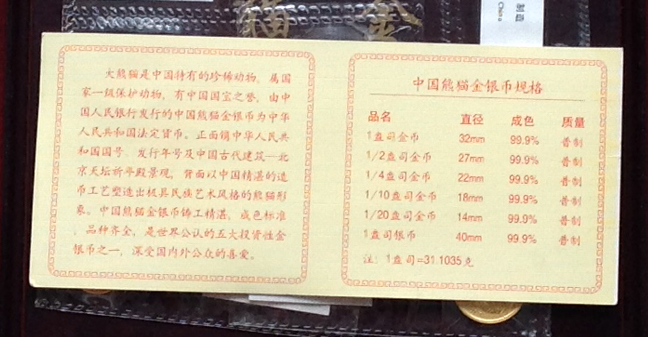 大熊猫是中国特有的珍稀动物，属国
家一级保护动物，有中国国宝之誉，由中
国人民银行发行的中国熊猫金银币为中华
人民共和国法定货币。正面镌中华人民共
和国国号、发行年号及中国古代建筑—北
京天坛祈年殿景观，背面以中国精湛的造
币工艺塑造出极具民族艺术风格的熊猫形
象。中国熊猫金银币铸工精湛，成色标准
，品种齐全，是世界公认的五大投资性金
银币之一，深受国内外公众的喜爱。
中国熊猫金银币规格
品名 直径 成色 质量
1盎司金币 32mm 99.9% 普制
1/2盎司金币 27mm 99.9% 普制
1/4盎司金币 22mm 99.9% 普制
1/10盎司金币 18mm 99.9% 普制
1/20盎司金币 14mm 99.9% 普制
1盎司银币 40mm 99.9% 普制
注：1盎司=31.1035克
China